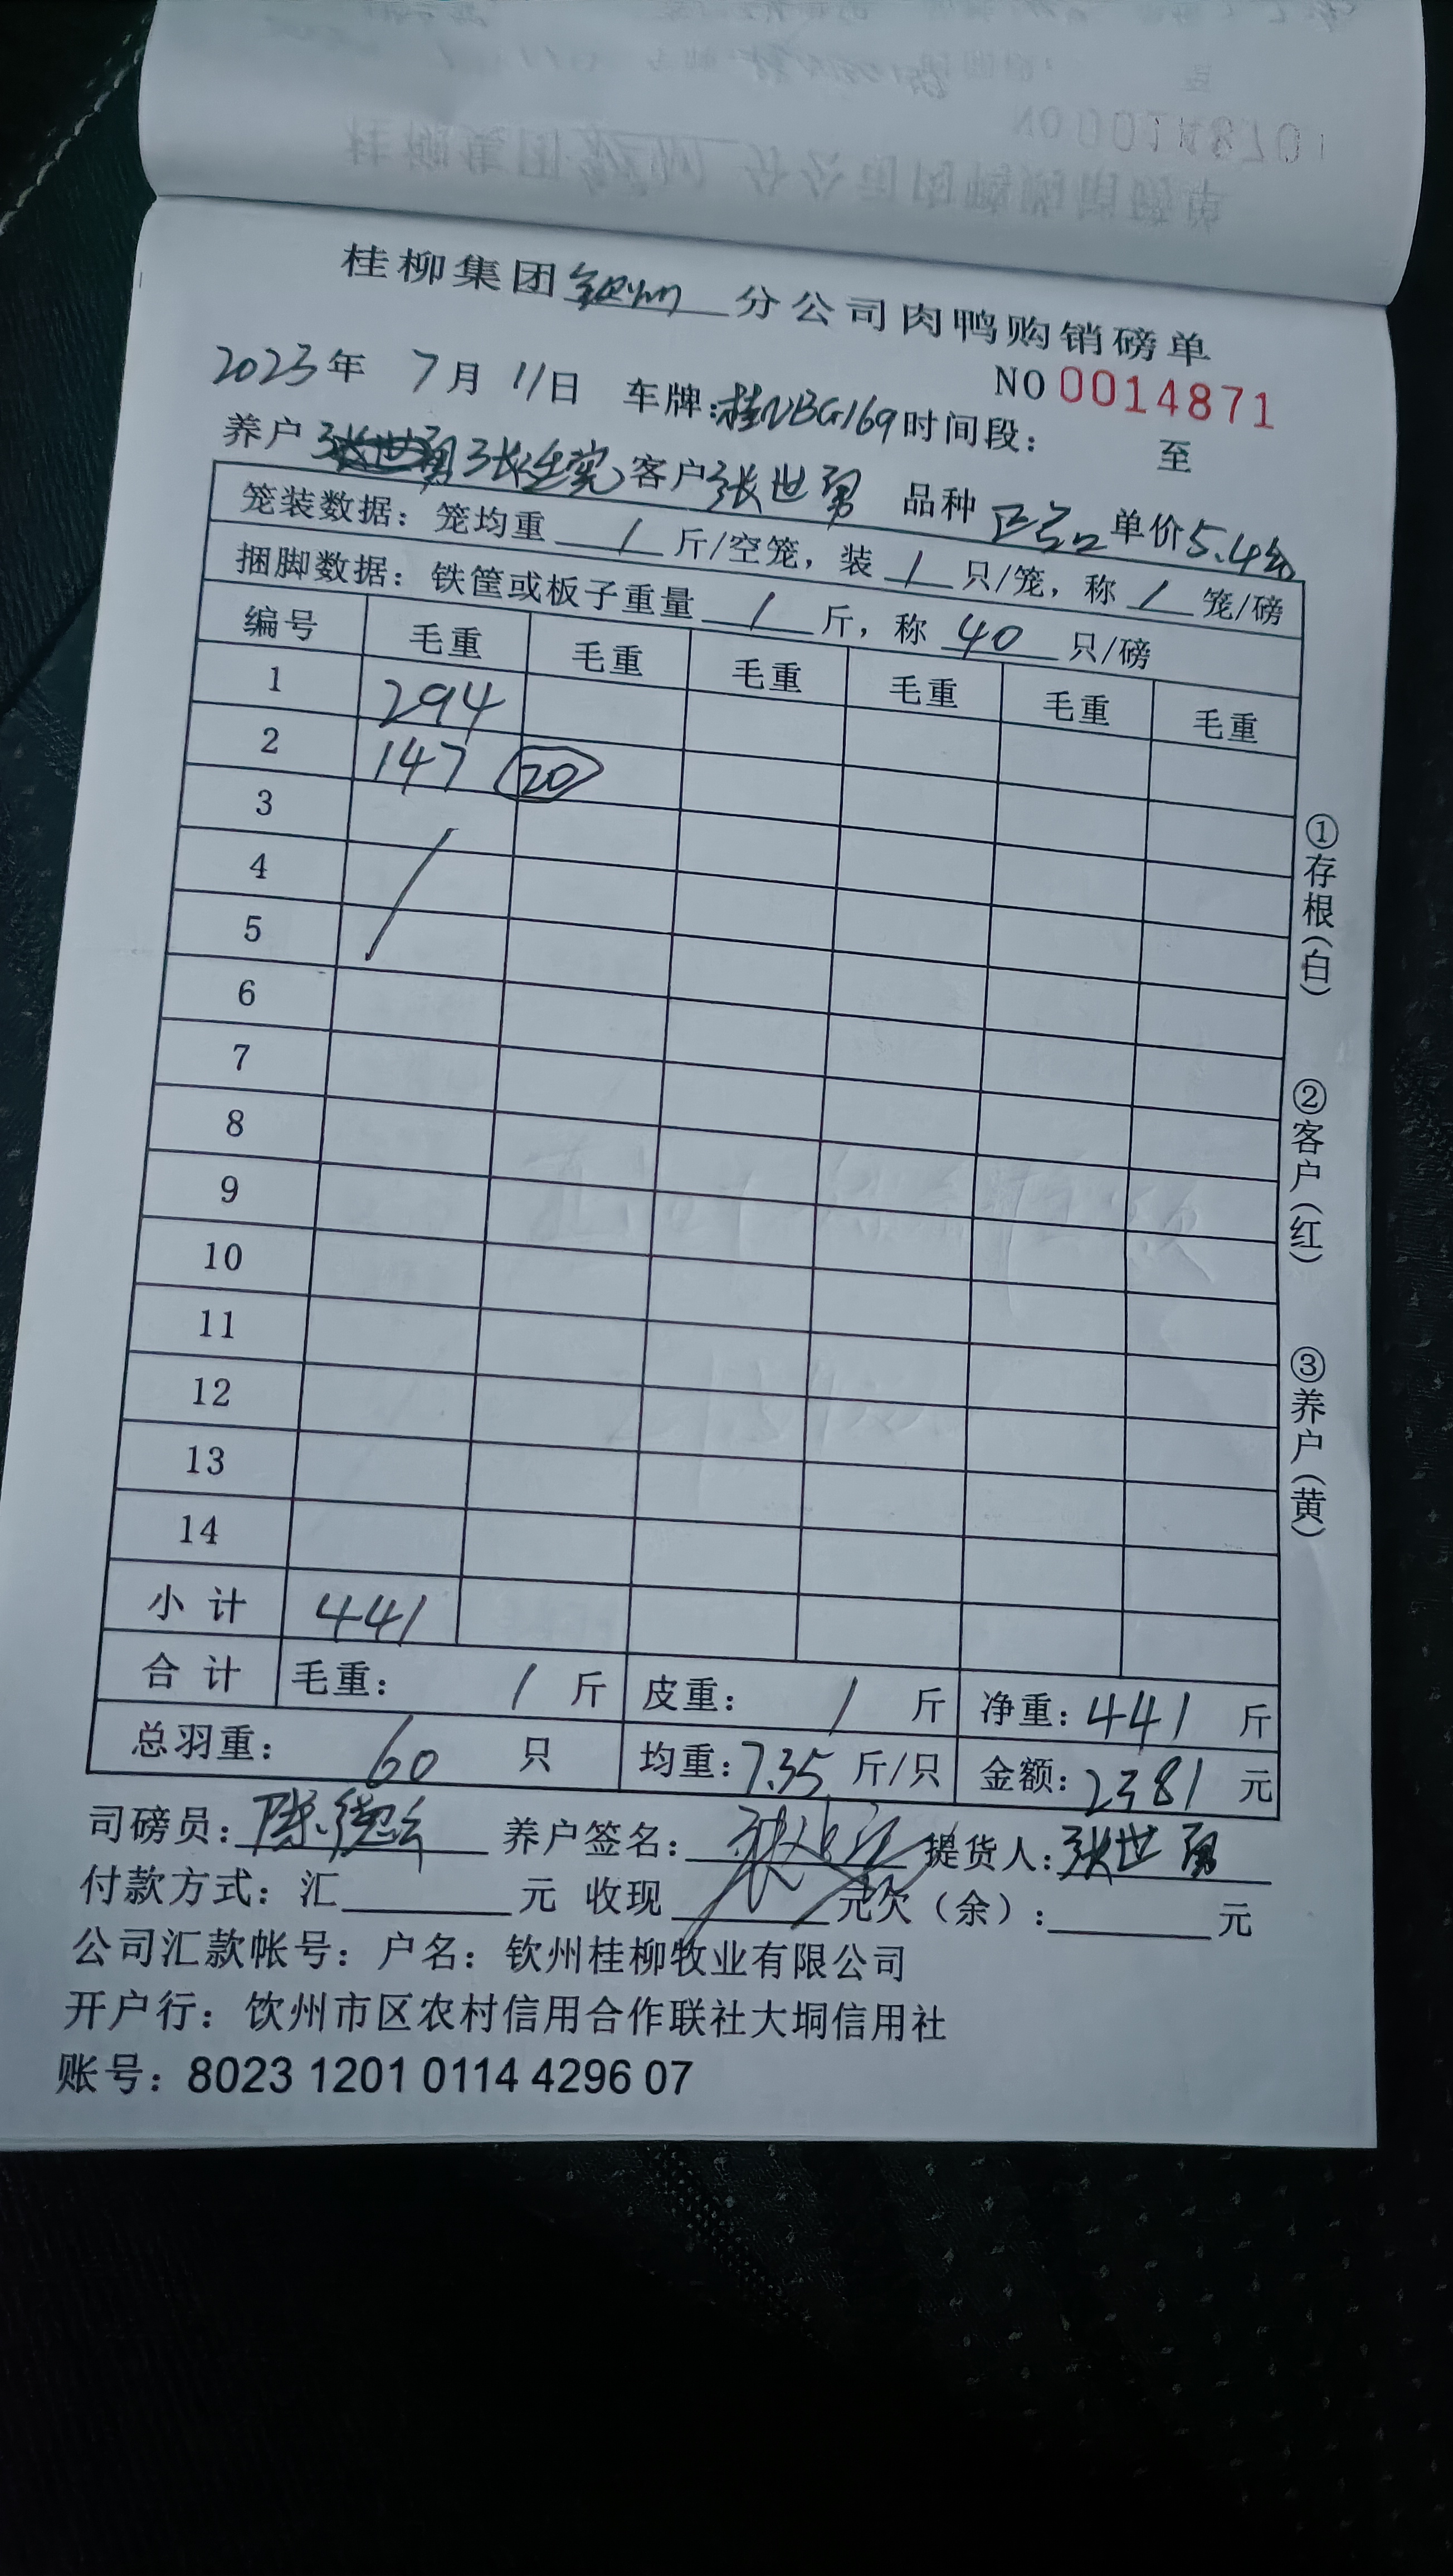 桂柳集团钦州分公司肉鸭购销磅单
NO 0014871
2023年 7月 11日 车牌:桂NBG169 时间段: 至
养户 张世勇 客户 张世勇 品种 正品 单价 5.4
笼装数据:笼均重 / 斤/空笼,装 / 只/笼,称 / 笼/磅
捆脚数据:铁筐或板子重量 / 斤,称 40 只/磅
编号 毛重 毛重 毛重 毛重 毛重 毛重
1 294
2 147 20
3
4
5
6
7
8
9
10
11
12
13
14
小计 441
合计 毛重: / 斤 皮重: / 斤 净重:441 斤
总羽重: 60 只 均重:7.35 斤/只 金额:2381 元
司磅员:陈 养户签名: 提货人:张世勇
付款方式:汇 元 收现 元欠(余): 元
公司汇款帐号:户名:钦州桂柳牧业有限公司
开户行:饮州市区农村信用合作联社大垌信用社
账号:8023 1201 0114 4296 07
①存根(白)
②客户(红)
③养户(黄)